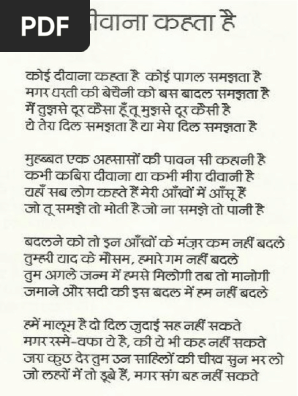 PDF
दीवाना कहता है
कोई दीवाना कहता है कोई पागल समझता है
मगर धरती की बेचैनी को बस बादल समझता है
मैं तुझसे दूर कैसा हूँ तू मुझसे दूर कैसी है
ये तेरा दिल समझता है या मेरा दिल समझता है
मुहब्बत एक अहसासों की पावन सी कहानी है
कभी कबिरा दीवाना था कभी मीरा दीवानी है
यहाँ सब लोग कहते हैं मेरी आँखों में आँसू हैं
जो तू समझे तो मोती है जो ना समझे तो पानी है
बदलने को तो इन आँखों के मंज़र कम नहीं बदले
तुम्हरी याद के मौसम, हमारे गम नहीं बदले
तुम अगले जन्म में हमसे मिलोगी तब तो मानोगी
जमाने और सदी की इस बदल में हम नहीं बदले
हमें मालूम है दो दिल जुदाई सह नहीं सकते
मगर रस्मे-वफा ये है, की ये भी कह नहीं सकते
जरा कुछ देर तुम उन साहिलों की चीख सुन भर लो
जो लहरों में तो डूबे हैं, मगर संग बह नहीं सकते